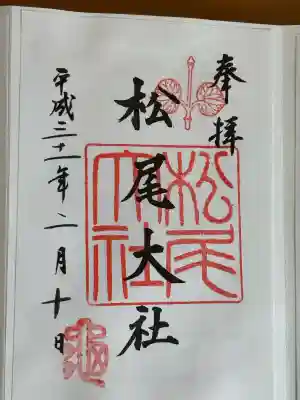 奉拝
松尾大社
松尾大社
平成三十一年二月十日